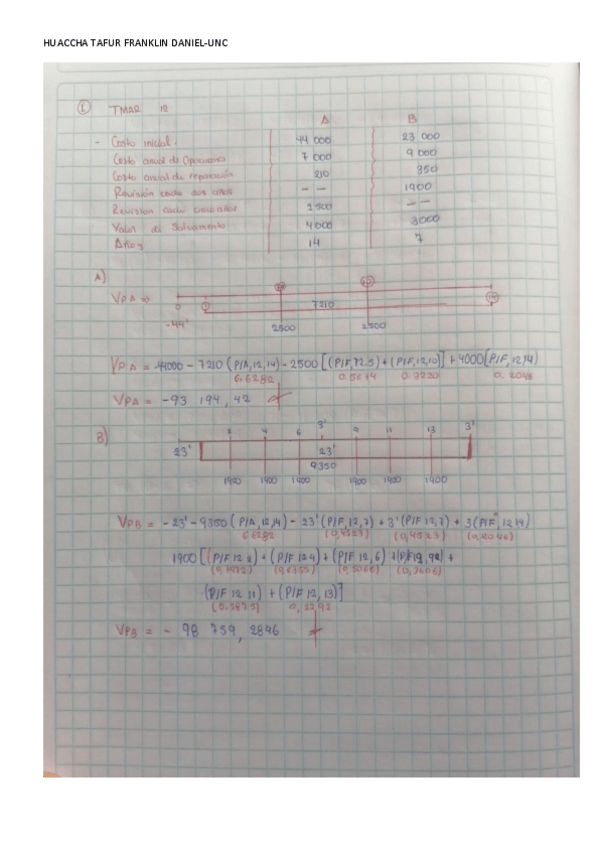 HUACCHA TAFUR FRANKLIN DANIEL-UNC
① TMAR 12
A B
- Costo inicial. 44 000 23 000
Costo anual de Operaciones 7 000 9 000
Costo anual de reparación 210 350
Revisión cada dos años -- 1900
Revision cada cinco años 2500 --
Valor de Salvamento 4000 3000
Años 14 7
A)
VPA =>
0 7210
-44' 2500 2500
VPA = -44000 - 7210 (P/A, 12, 14) - 2500 [(P/F, 12, 5) + (P/F, 12, 10)] + 4000 (P/F, 12, 14)
6.6282 0.5674 0.3220 0.2046
VPA = -93 194,42
B)
2 4 6 3' 9 11 13 3'
23' 23'
9350
1900 1900 1900 1900 1900 1900
VPB = -23' - 9350 (P/A, 12, 14) - 23' (P/F, 12, 7) + 3' (P/F 12, 7) + 3 (P/F, 12 14)
6.6282 (0,4523) (0,4523) (0,2046)
1900 [(P/F 12 2) + (P/F 12 4) + (P/F 12, 6) +
(0,7972) (0,6355) (0,5066) (0,3606)
(P/F 12 11) + (P/F 12, 13)]
(0.2875) 0,2292
VPB = - 98 759, 2846